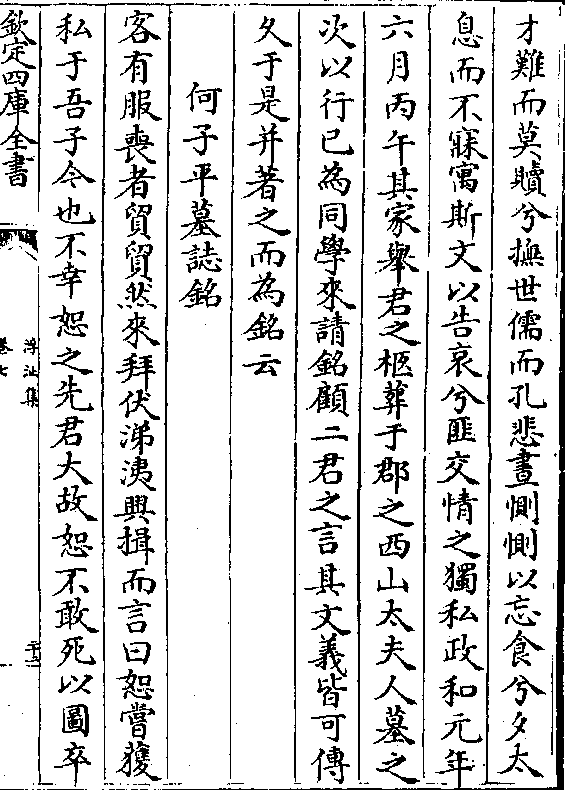 才難而莫贖兮撫世儒而孔悲晝惻惻以忘食兮夕太
息而不寐寓斯文以告哀兮匪交情之獨私政和元年
六月丙午其家舉君之柩葬于郡之西山太夫人墓之
次以行已為同學來請銘顧二君之言其文義皆可傳
久于是并著之而為銘云
何子平墓誌銘
客有服喪者貿貿然來拜伏涕洟興揖而言曰恕嘗獲
私于吾子今也不幸恕之先君大故恕不敢死以圖卒
欽定四庫全書
浮沚集
卷七